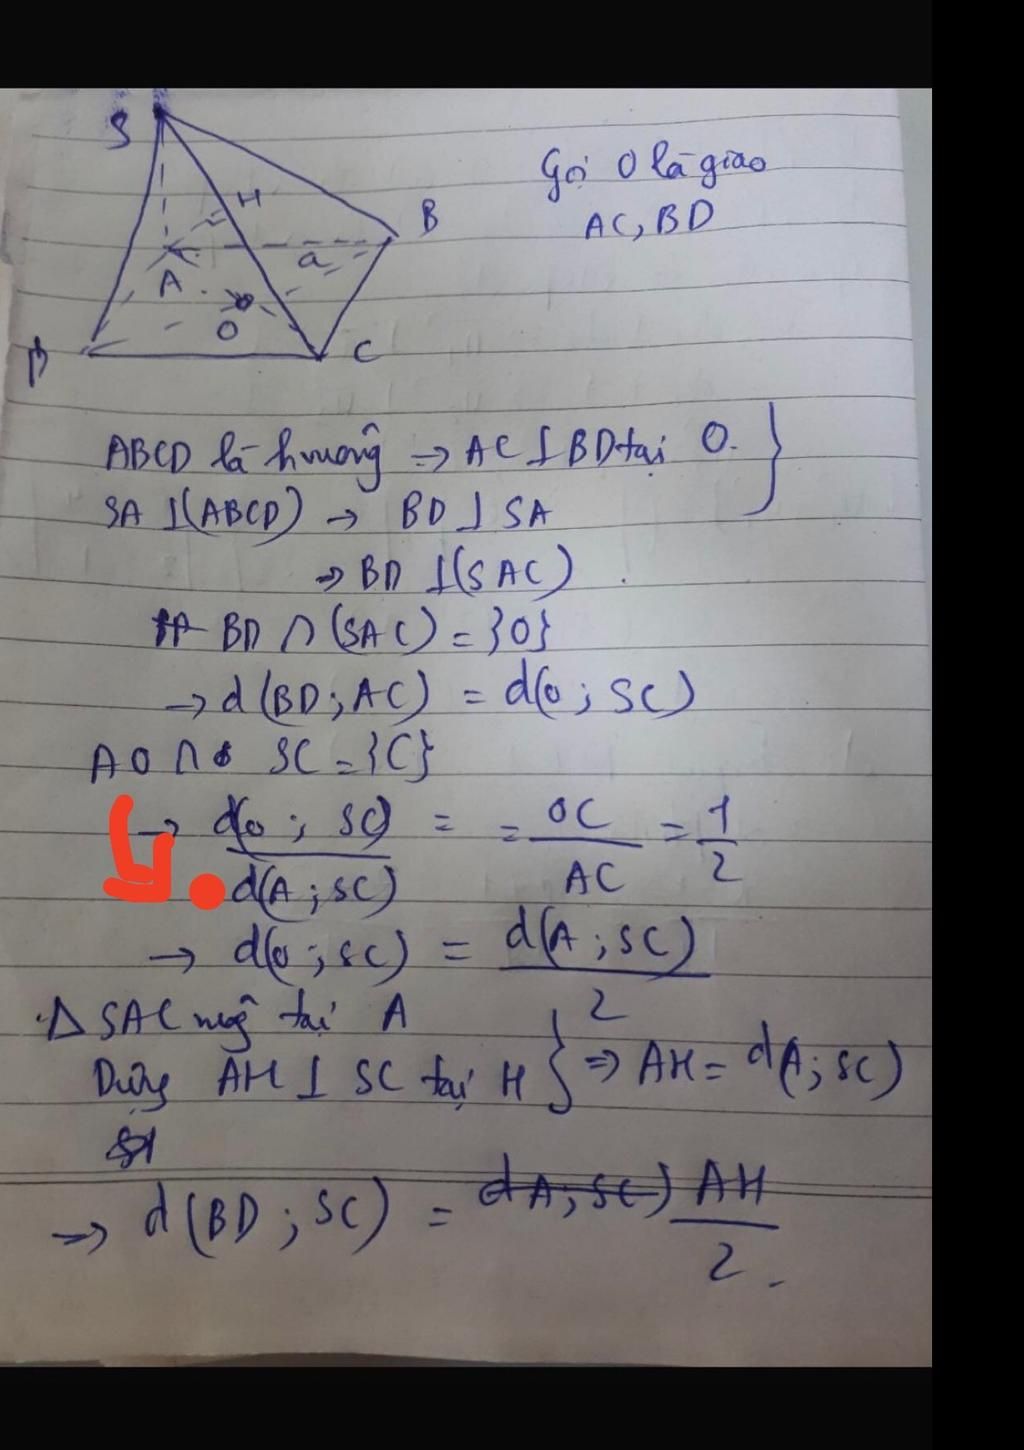 S
H
B
a
A
O
D
C
Gọi O là giao
AC, BD
ABCD là hvuông → AC ⊥ BD tại O. }
SA ⊥ (ABCD) → BD ⊥ SA
⇒ BD ⊥ (SAC).
BD ∩ (SAC) = {O}
→ d(BD; AC) = d(O; SC)
AO ∩ SC = {C}
→ d(O; SC) / d(A; SC) = = OC / AC = 1 / 2
→ d(O; SC) = d(A; SC) / 2
ΔSAC vuông tại A
Dựng AH ⊥ SC tại H } ⇒ AH = d(A; SC)
→ d(BD; SC) = d A; SC) AH / 2.